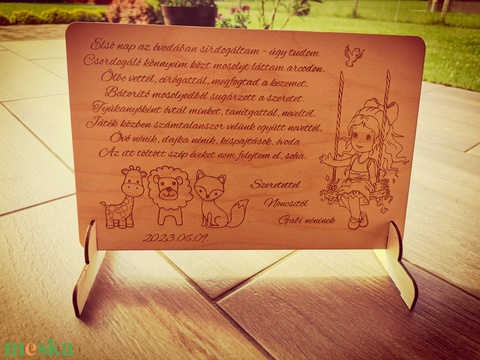 Első nap az óvodában sírdogáltam - úgy tudom.
Csordogáló könnyeim közt mosolyt láttam arcodon.
Ölbe vettél, cirógattál, megfogtad a kezemet.
Bátorító mosolyodból sugárzott a szeretet.
Tyúkanyóként óvtál minket, tanítgattál, neveltél.
Játék közben számtalanszor velünk együtt nevettél.
Óvó nénik, dajka nénik, kispajtások, óvoda
Az itt töltött szép éveket nem felejtem el, soha.
Szeretettel
Noncsitól
Gabi néninek
2023.06.09.
meska